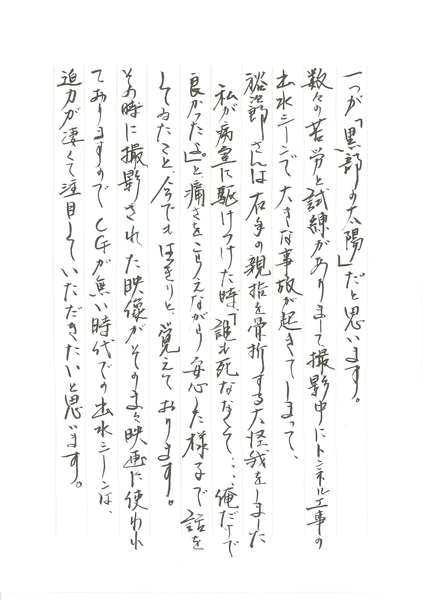 一つが「黒部の太陽」だと思います。
数々の苦労と試練がありまして撮影中にトンネル工事の
出水シーンで大きな事故が起きてしまって、
裕次郎さんは右手の親指を骨折する大怪我をしました
私が病室に駆けつけた時、「誰も死ななくて...俺だけで
良かったよ。」と痛さをこらえながら安心した様子で話を
してゐたこと、今でもはっきりと覚えております。
その時に撮影された映像がそのまゝ映画に使われ
ておりますので CGが無い時代での出水シーンは、
迫力が凄くて注目していただきたいと思います。